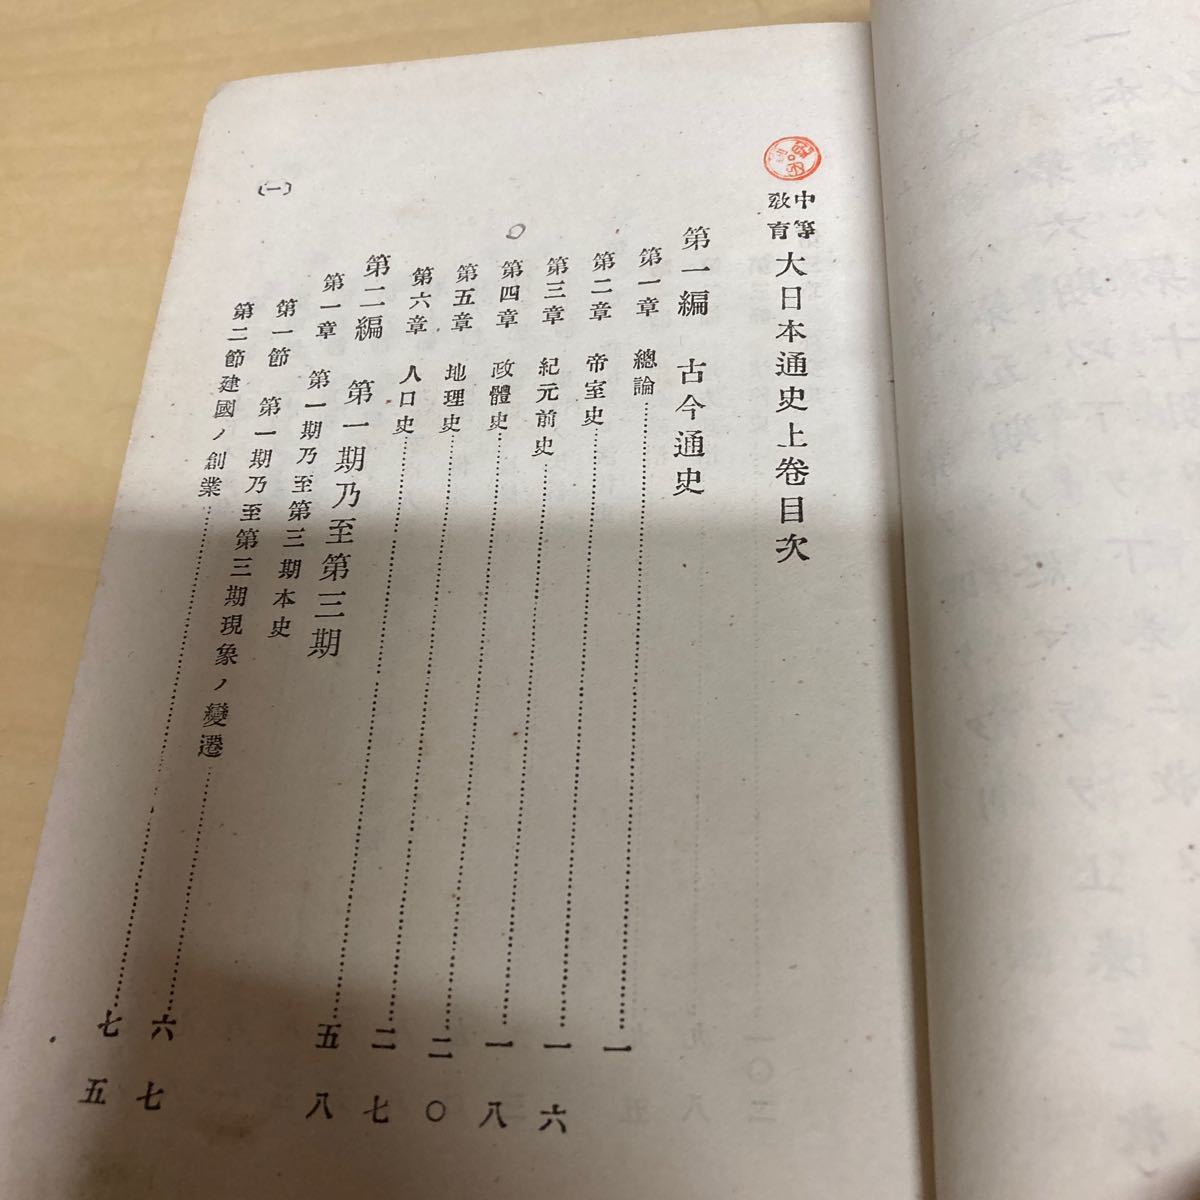 中等敎育 大日本通史上卷目次
第一編 古今通史
第一章 總論……一
第二章 帝室史……一六
第三章 紀元前史……一八
第四章 政體史……二〇
第五章 地理史……二七
第六章 人口史……五八
第二編 第一期乃至第三期
第一章 第一期乃至第三期本史
第一節 第一期乃至第三期現象ノ變遷……六七
第二節 建國ノ創業……七五
(一)